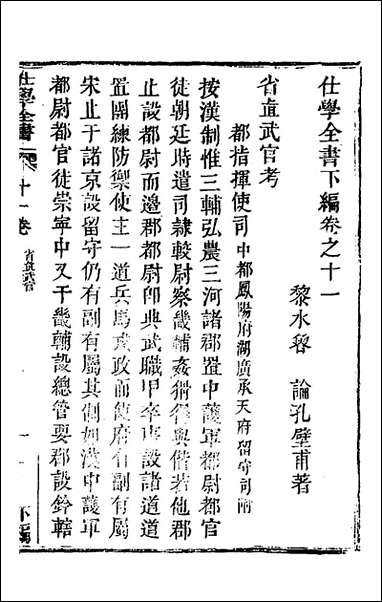 仕學全書下編卷之十一
黎水魯論孔壁甫著
省直武官考
都指揮使司中都鳳陽府湖廣承天府留守司附
按漢制惟三輔弘農三河諸郡置中護軍都尉都官
徒朝廷時遣司隸較尉察畿輔姦猾得與偕若他郡
止設都尉而邊郡都尉卽典武職甲卒唐設諸道道
置團練防禦使主一道兵馬戎政而使府有副有屬
宋止于諸京設留守仍有副有屬其制如漢中護軍
都尉都官徒崇寧中又于畿輔設總管要郡設鈐轄
仕學全書
十一卷
省直武官
一
下編